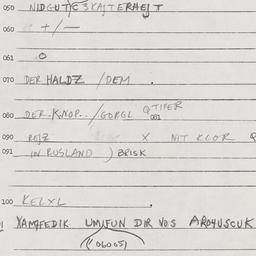 050 NIDGUT)C 3KAJTERHEJT
060 + / —
061 O
070 DER HALDZ / DEM .
080 DER. KNOP.. / GORGL Q TIPER 081
090 REJZ X NIT KLOR Q
091 IN RUSLAND ) BRISK
100 KELXL .
XAMFEDIK UMIFUN DIR VOS
(06005)